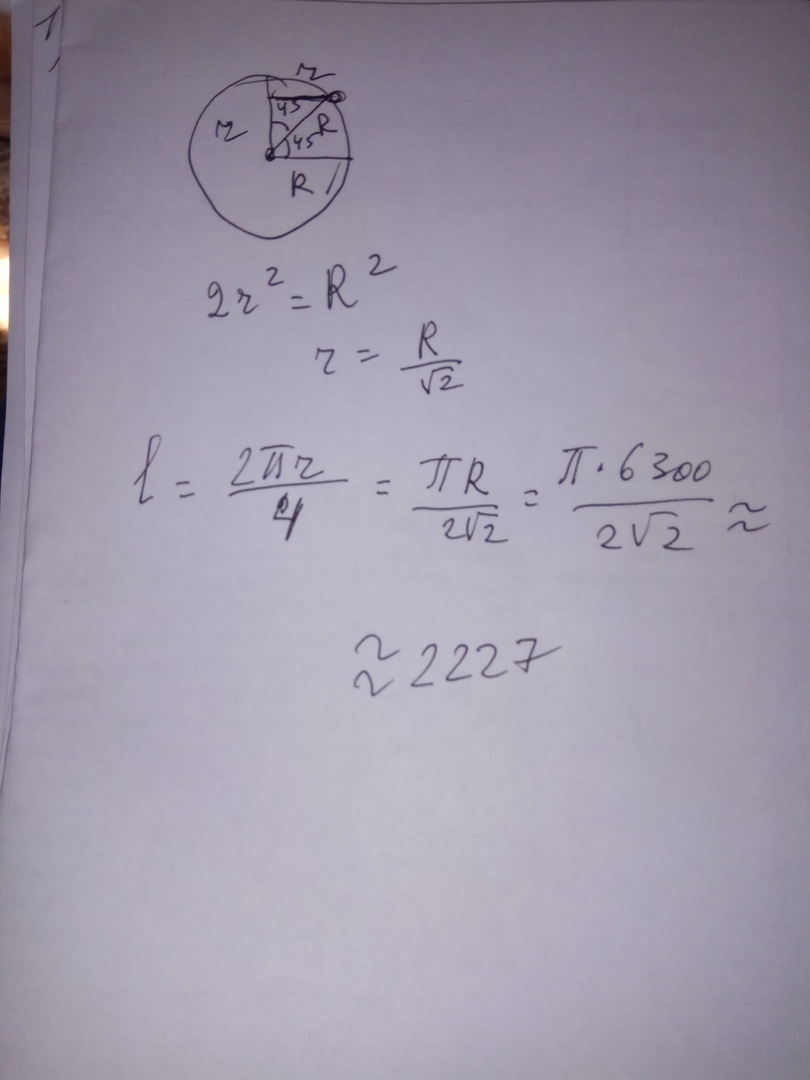 1,
r
45
r
R
45
R
2r² = R²
r = R/√2
l = 2πr/4 = πR/2√2 = π·6300/2√2 ≈
≈ 2227